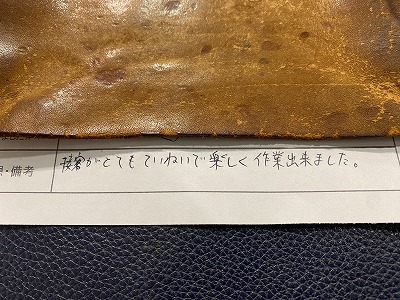 ・備考
接客がとてもていねいで楽しく作業出来ました。